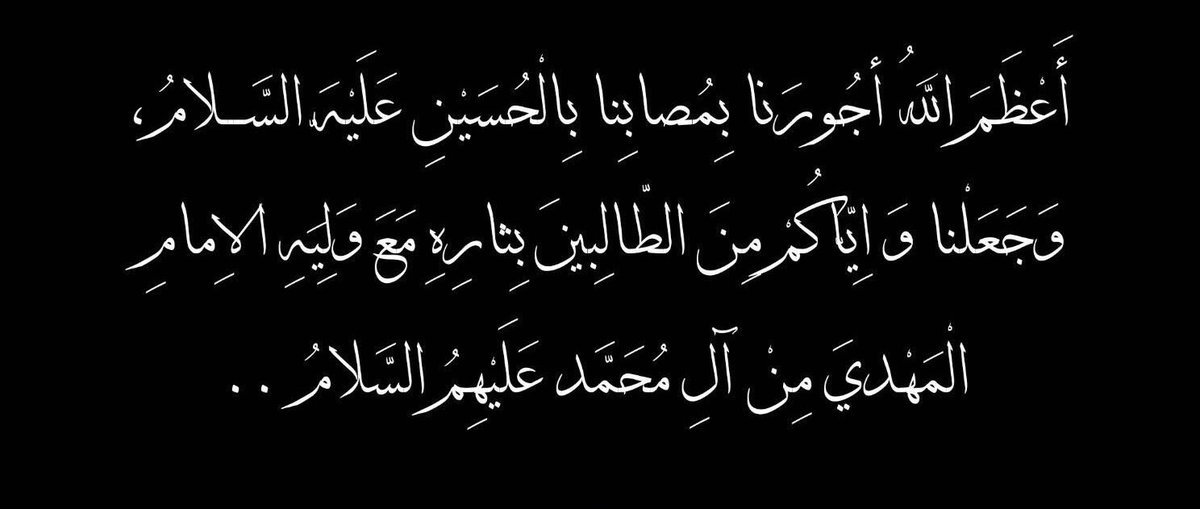 أَعْظَمَ اللهُ أُجُورَنا بِمُصابِنا بِالْحُسَيْنِ عَلَيْهِ السَّلامُ،
وَجَعَلْنا وَ اِيّاكُمْ مِنَ الطّالِبينَ بِثارِهِ مَعَ وَلِيِهِ الاِمامِ
الْمَهْدِيَ مِنْ آلِ مُحَمَّد عَلَيْهِمُ السَّلامُ . .